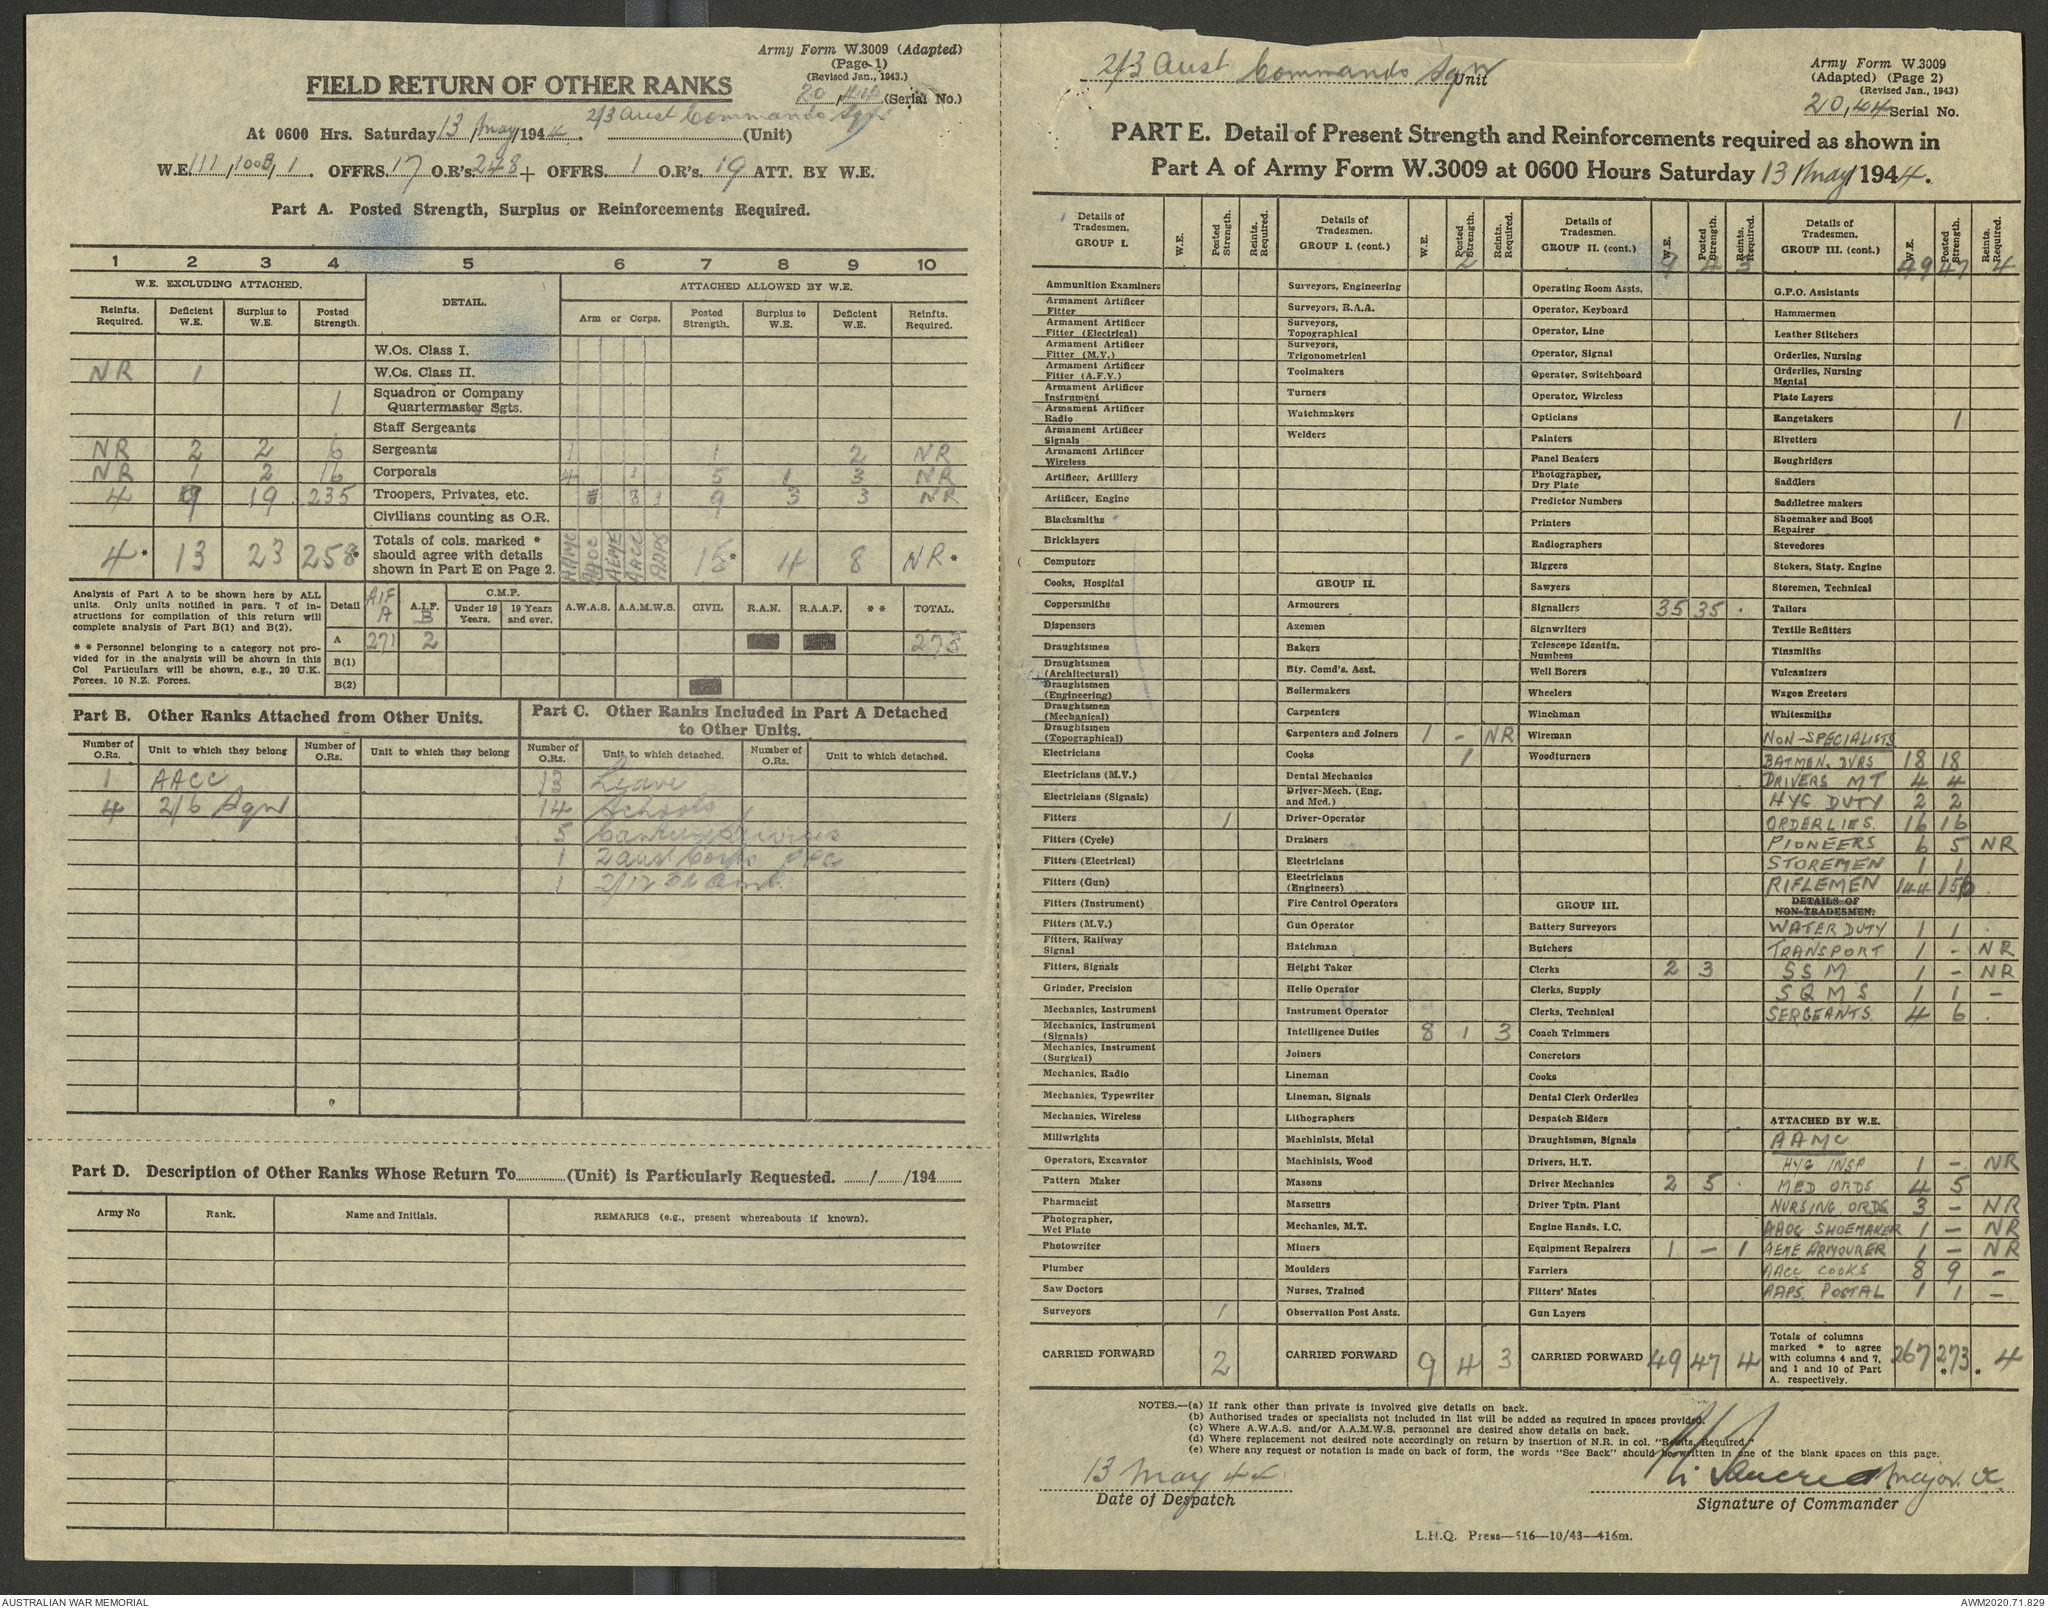 Army Form W.3009 (Adapted)
(Page 1)
(Revised Jan., 1943.)
FIELD RETURN OF OTHER RANKS
20,44 (Serial No.)
At 0600 Hrs. Saturday 13 May 1944. 2/3 Aust Commando Sqn (Unit)
W.E. 111, 100B, 1. OFFRS. 17 O.R's. 248 + OFFRS. 1 O.R's. 19 ATT. BY W.E.
Part A. Posted Strength, Surplus or Reinforcements Required.
1 2 3 4 5 6 7 8 9 10
W.E. EXCLUDING ATTACHED. DETAIL. ATTACHED ALLOWED BY W.E.
Reinfts. Required. Deficient W.E. Surplus to W.E. Posted Strength. Arm or Corps. Posted Strength. Surplus to W.E. Deficient W.E. Reinfts. Required.
W.Os. Class I.
NR 1 W.Os. Class II.
1 Squadron or Company Quartermaster Sgts.
Staff Sergeants
NR 2 2 6 Sergeants 1 1 2 NR
NR 1 2 16 Corporals 4 1 5 1 3 NR
4 9 19 235 Troopers, Privates, etc. 8 1 9 3 3 NR
Civilians counting as O.R.
4* 13 23 258* Totals of cols. marked * should agree with details shown in Part E on Page 2. AAMC AAOC AEME AACC AAPS 15* 4 8 NR*
Analysis of Part A to be shown here by ALL units. Only units notified in para. 7 of instructions for compilation of this return will complete analysis of Part B(1) and B(2).
* * Personnel belonging to a category not provided for in the analysis will be shown in this Col Particulars will be shown, e.g., 20 U.K. Forces, 10 N.Z. Forces.
Detail AIF A A.I.F. B C.M.F. Under 19 Years. 19 Years and over. A.W.A.S. A.A.M.W.S. CIVIL R.A.N. R.A.A.F. * * TOTAL.
A 271 2 273
B(1)
B(2)
Part B. Other Ranks Attached from Other Units.
Part C. Other Ranks Included in Part A Detached to Other Units.
Number of O.Rs. Unit to which they belong Number of O.Rs. Unit to which they belong Number of O.Rs. Unit to which detached. Number of O.Rs. Unit to which detached.
1 AACC 13 Leave
4 2/6 Sqn 14 Schools
5 Canteen Services
1 2 Aust Corps
1 2/12 Fd Amb.
Part D. Description of Other Ranks Whose Return To (Unit) is Particularly Requested. / /194
Army No Rank. Name and Initials. REMARKS (e.g., present whereabouts if known).
2/3 Aust Commando Sqn Unit
Army Form W.3009
(Adapted) (Page 2)
(Revised Jan., 1943)
20,44 Serial No.
PART E. Detail of Present Strength and Reinforcements required as shown in
Part A of Army Form W.3009 at 0600 Hours Saturday 13 May 1944.
Details of Tradesmen. GROUP I. W.E. Posted Strength. Reints. Required.
Ammunition Examiners
Armament Artificer Fitter
Armament Artificer Fitter (Electrical)
Armament Artificer Fitter (M.V.)
Armament Artificer Fitter (A.F.V.)
Armament Artificer Instrument
Armament Artificer Radio
Armament Artificer Signals
Armament Artificer Wireless
Artificer, Artillery
Artificer, Engine
Blacksmiths
Bricklayers
Computors
Cooks, Hospital
Coppersmiths
Dispensers
Draughtsmen
Draughtsmen (Architectural)
Draughtsmen (Engineering)
Draughtsmen (Mechanical)
Draughtsmen (Topographical)
Electricians
Electricians (M.V.)
Electricians (Signals)
Fitters 1
Fitters (Cycle)
Fitters (Electrical)
Fitters (Gun)
Fitters (Instrument)
Fitters (M.V.)
Fitters, Railway Signal
Fitters, Signals
Grinder, Precision
Mechanics, Instrument
Mechanics, Instrument (Signals)
Mechanics, Instrument (Surgical)
Mechanics, Radio
Mechanics, Typewriter
Mechanics, Wireless
Millwrights
Operators, Excavator
Pattern Maker
Pharmacist
Photographer, Wet Plate
Photowriter
Plumber
Saw Doctors
Surveyors 1
CARRIED FORWARD 2
Details of Tradesmen. GROUP I. (cont.) W.E. Posted Strength. Reints. Required.
2
Surveyors, Engineering
Surveyors, R.A.A.
Surveyors, Topographical
Surveyors, Trigonometrical
Toolmakers
Turners
Watchmakers
Welders
GROUP II.
Armourers
Axemen
Bakers
Bty. Comd's. Asst.
Boilermakers
Carpenters
Carpenters and Joiners 1 - NR
Cooks 1
Dental Mechanics
Driver-Mech. (Eng. and Med.)
Driver-Operator
Drainers
Electricians
Electricians (Engineers)
Fire Control Operators
Gun Operator
Hatchman
Height Taker
Helio Operator
Instrument Operator
Intelligence Duties 8 1 3
Joiners
Lineman
Lineman, Signals
Lithographers
Machinists, Metal
Machinists, Wood
Masons
Masseurs
Mechanics, M.T.
Miners
Moulders
Nurses, Trained
Observation Post Assts.
CARRIED FORWARD 9 4 3
Details of Tradesmen. GROUP II. (cont.) W.E. Posted Strength. Reints. Required.
9 4 3
Operating Room Assts.
Operator, Keyboard
Operator, Line
Operator, Signal
Operator, Switchboard
Operator, Wireless
Opticians
Painters
Panel Beaters
Photographer, Dry Plate
Predictor Numbers
Printers
Radiographers
Riggers
Sawyers
Signallers 35 35 .
Signwriters
Telescope Identfn. Numbers
Well Borers
Wheelers
Winchman
Wireman
Woodturners
GROUP III.
Battery Surveyors
Butchers
Clerks 2 3
Clerks, Supply
Clerks, Technical
Coach Trimmers
Concretors
Cooks
Dental Clerk Orderlies
Despatch Riders
Draughtsmen, Signals
Drivers, H.T.
Driver Mechanics 2 5 .
Driver Tptn. Plant
Engine Hands, I.C.
Equipment Repairers 1 - 1
Farriers
Fitters' Mates
Gun Layers
CARRIED FORWARD 49 47 4
Details of Tradesmen. GROUP III. (cont.) W.E. Posted Strength. Reints. Required.
49 47 4
G.P.O. Assistants
Hammermen
Leather Stitchers
Orderlies, Nursing
Orderlies, Nursing Mental
Plate Layers
Rangetakers 1
Rivetters
Roughriders
Saddlers
Saddletree makers
Shoemaker and Boot Repairer
Stevedores
Stokers, Staty. Engine
Storemen, Technical
Tailors
Textile Refitters
Tinsmiths
Vulcanizers
Wagon Erectors
Whitesmiths
NON-SPECIALISTS
BATMEN. DVRS 18 18
DRIVERS MT 4 4
HYG DUTY 2 2
ORDERLIES 16 16
PIONEERS 6 5 NR
STOREMEN 1 1
RIFLEMEN 144 156 .
DETAILS OF NON-TRADESMEN.
WATER DUTY 1 1 .
TRANSPORT 1 - NR
SSM 1 - NR
SQMS 1 1 -
SERGEANTS 4 6 .
ATTACHED BY W.E.
AAMC
HYG INSP 1 - NR
MED ORDS 4 5
NURSING ORDS 3 - NR
AAOC SHOEMAKER 1 - NR
AEME ARMOURER 1 - NR
AACC COOKS 8 9 -
AAPS. POSTAL 1 1 -
Totals of columns marked * to agree with columns 4 and 7, and 1 and 10 of Part A. respectively. 267 273* * 4
NOTES.—(a) If rank other than private is involved give details on back.
(b) Authorised trades or specialists not included in list will be added as required in spaces provided.
(c) Where A.W.A.S. and/or A.A.M.W.S. personnel are desired show details on back.
(d) Where replacement not desired note accordingly on return by insertion of N.R. in col. "Reints. Required."
(e) Where any request or notation is made on back of form, the words "See Back" should be written in one of the blank spaces on this page.
13 May 44
Date of Despatch
Major. OC
Signature of Commander
L.H.Q. Press—516—10/43—416m.
AUSTRALIAN WAR MEMORIAL
AWM2020.71.829